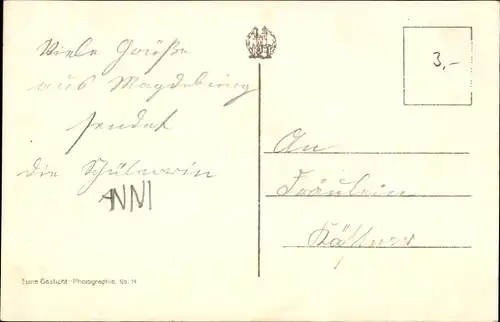 Viele Grüße
aus Magdeburg
sendet
die Schülerin
ANNI
3,-
An
Fräulein
Gaslicht-Photographie. No. 14